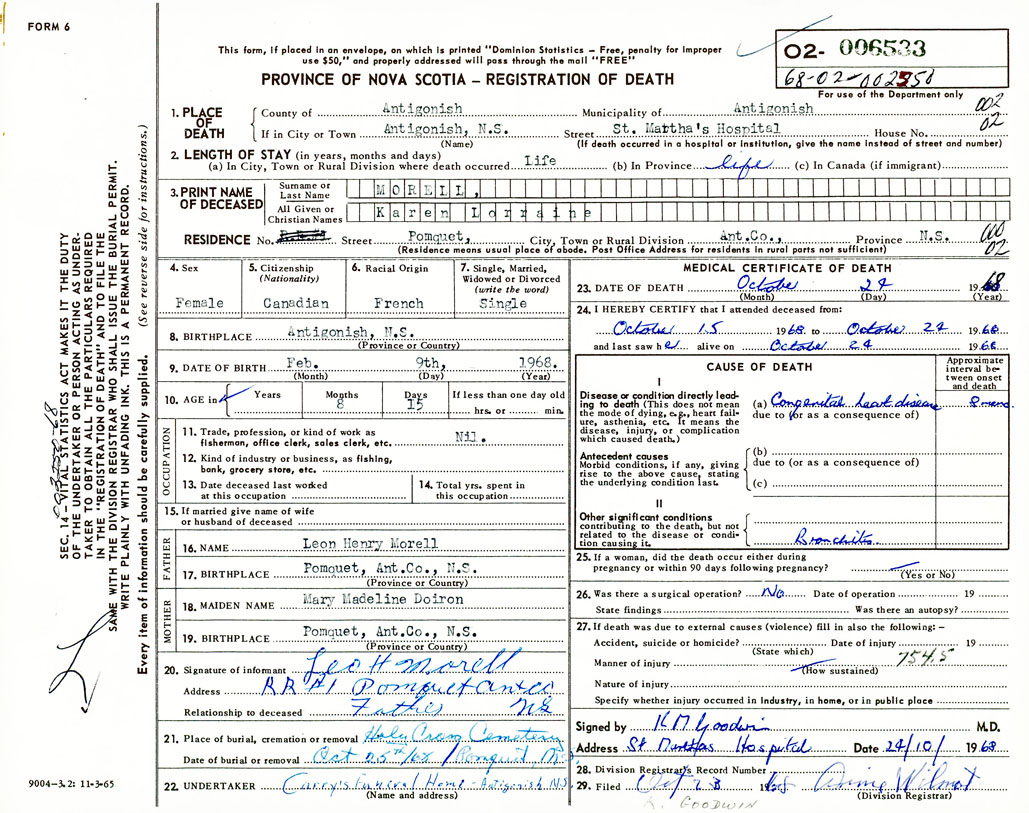 FORM 6
This form, if placed in an envelope, on which is printed "Dominion Statistics – Free, penalty for improper
use $50," and properly addressed will pass through the mail "FREE"
PROVINCE OF NOVA SCOTIA – REGISTRATION OF DEATH
02- 006533
68-02-002350
For use of the Department only
002
02
1. PLACE OF DEATH
County of Antigonish Municipality of Antigonish
If in City or Town Antigonish, N.S. Street St. Martha's Hospital House No.
(Name) (If death occurred in a hospital or institution, give the name instead of street and number)
2. LENGTH OF STAY (in years, months and days)
(a) In City, Town or Rural Division where death occurred Life (b) In Province life (c) In Canada (if immigrant)
3. PRINT NAME OF DECEASED
Surname or Last Name MORELL,
All Given or Christian Names Karen Lorraine
RESIDENCE No. Street Pomquet, City, Town or Rural Division Ant.Co., Province N.S.
(Residence means usual place of abode. Post Office Address for residents in rural parts not sufficient)
02
4. Sex
Female
5. Citizenship
(Nationality)
Canadian
6. Racial Origin
French
7. Single, Married,
Widowed or Divorced
(write the word)
Single
8. BIRTHPLACE Antigonish, N.S.
(Province or Country)
9. DATE OF BIRTH Feb. 9th, 1968.
(Month) (Day) (Year)
10. AGE in Years Months Days If less than one day old
8 15 hrs. or min.
OCCUPATION
11. Trade, profession, or kind of work as
fisherman, office clerk, sales clerk, etc. Nil.
12. Kind of industry or business, as fishing,
bank, grocery store, etc.
13. Date deceased last worked
at this occupation
14. Total yrs. spent in
this occupation
15. If married give name of wife
or husband of deceased
FATHER
16. NAME Leon Henry Morell
17. BIRTHPLACE Pomquet, Ant.Co., N.S.
(Province or Country)
MOTHER
18. MAIDEN NAME Mary Madeline Doiron
19. BIRTHPLACE Pomquet, Ant.Co., N.S.
(Province or Country)
20. Signature of informant Leo H Morell
Address RR #1 Pomquet Ant Co
Relationship to deceased Father NS
21. Place of burial, cremation or removal Holy Cross Cemetery
Date of burial or removal Oct 25th/68 / Pomquet,
22. UNDERTAKER Curry's Funeral Home - Antigonish N.S.
(Name and address)
MEDICAL CERTIFICATE OF DEATH
23. DATE OF DEATH October 24 1968
(Month) (Day) (Year)
24. I HEREBY CERTIFY that I attended deceased from:
October 15 1968 to October 24 1968
and last saw her alive on October 24 1968
CAUSE OF DEATH
Approximate
interval be-
tween onset
and death
I
Disease or condition directly lead-
ing to death (This does not mean
the mode of dying, e.g., heart fail-
ure, asthenia, etc. It means the
disease, injury, or complication
which caused death.)
(a) Congenital heart disease 8 mons
due to (or as a consequence of)
Antecedent causes
Morbid conditions, if any, giving
rise to the above cause, stating
the underlying condition last.
(b)
due to (or as a consequence of)
(c)
II
Other significant conditions
contributing to the death, but not
related to the disease or condi-
tion causing it.
Bronchitis
25. If a woman, did the death occur either during
pregnancy or within 90 days following pregnancy?
(Yes or No)
26. Was there a surgical operation? No Date of operation 19
State findings Was there an autopsy?
27. If death was due to external causes (violence) fill in also the following: –
Accident, suicide or homicide? Date of injury 19
(State which)
Manner of injury 754.5
(How sustained)
Nature of injury
Specify whether injury occurred in Industry, in home, or in public place
Signed by K M Goodwin M.D.
Address St Marthas Hospital Date 24/10/ 1968
28. Division Registrar's Record Number
29. Filed Oct 28 1968 Wilmot
(Division Registrar)
K. GOODWIN
SEC. 14 – VITAL STATISTICS ACT MAKES IT THE DUTY
OF THE UNDERTAKER OR PERSON ACTING AS UNDER-
TAKER TO OBTAIN ALL THE PARTICULARS REQUIRED
IN THE "REGISTRATION OF DEATH" AND TO FILE THE
SAME WITH THE DIVISION REGISTRAR WHO SHALL ISSUE THE BURIAL PERMIT.
WRITE PLAINLY WITH UNFADING INK. THIS IS A PERMANENT RECORD.
Every item of information should be carefully supplied. (See reverse side for instructions.)
9004-3.2: 11-3-65